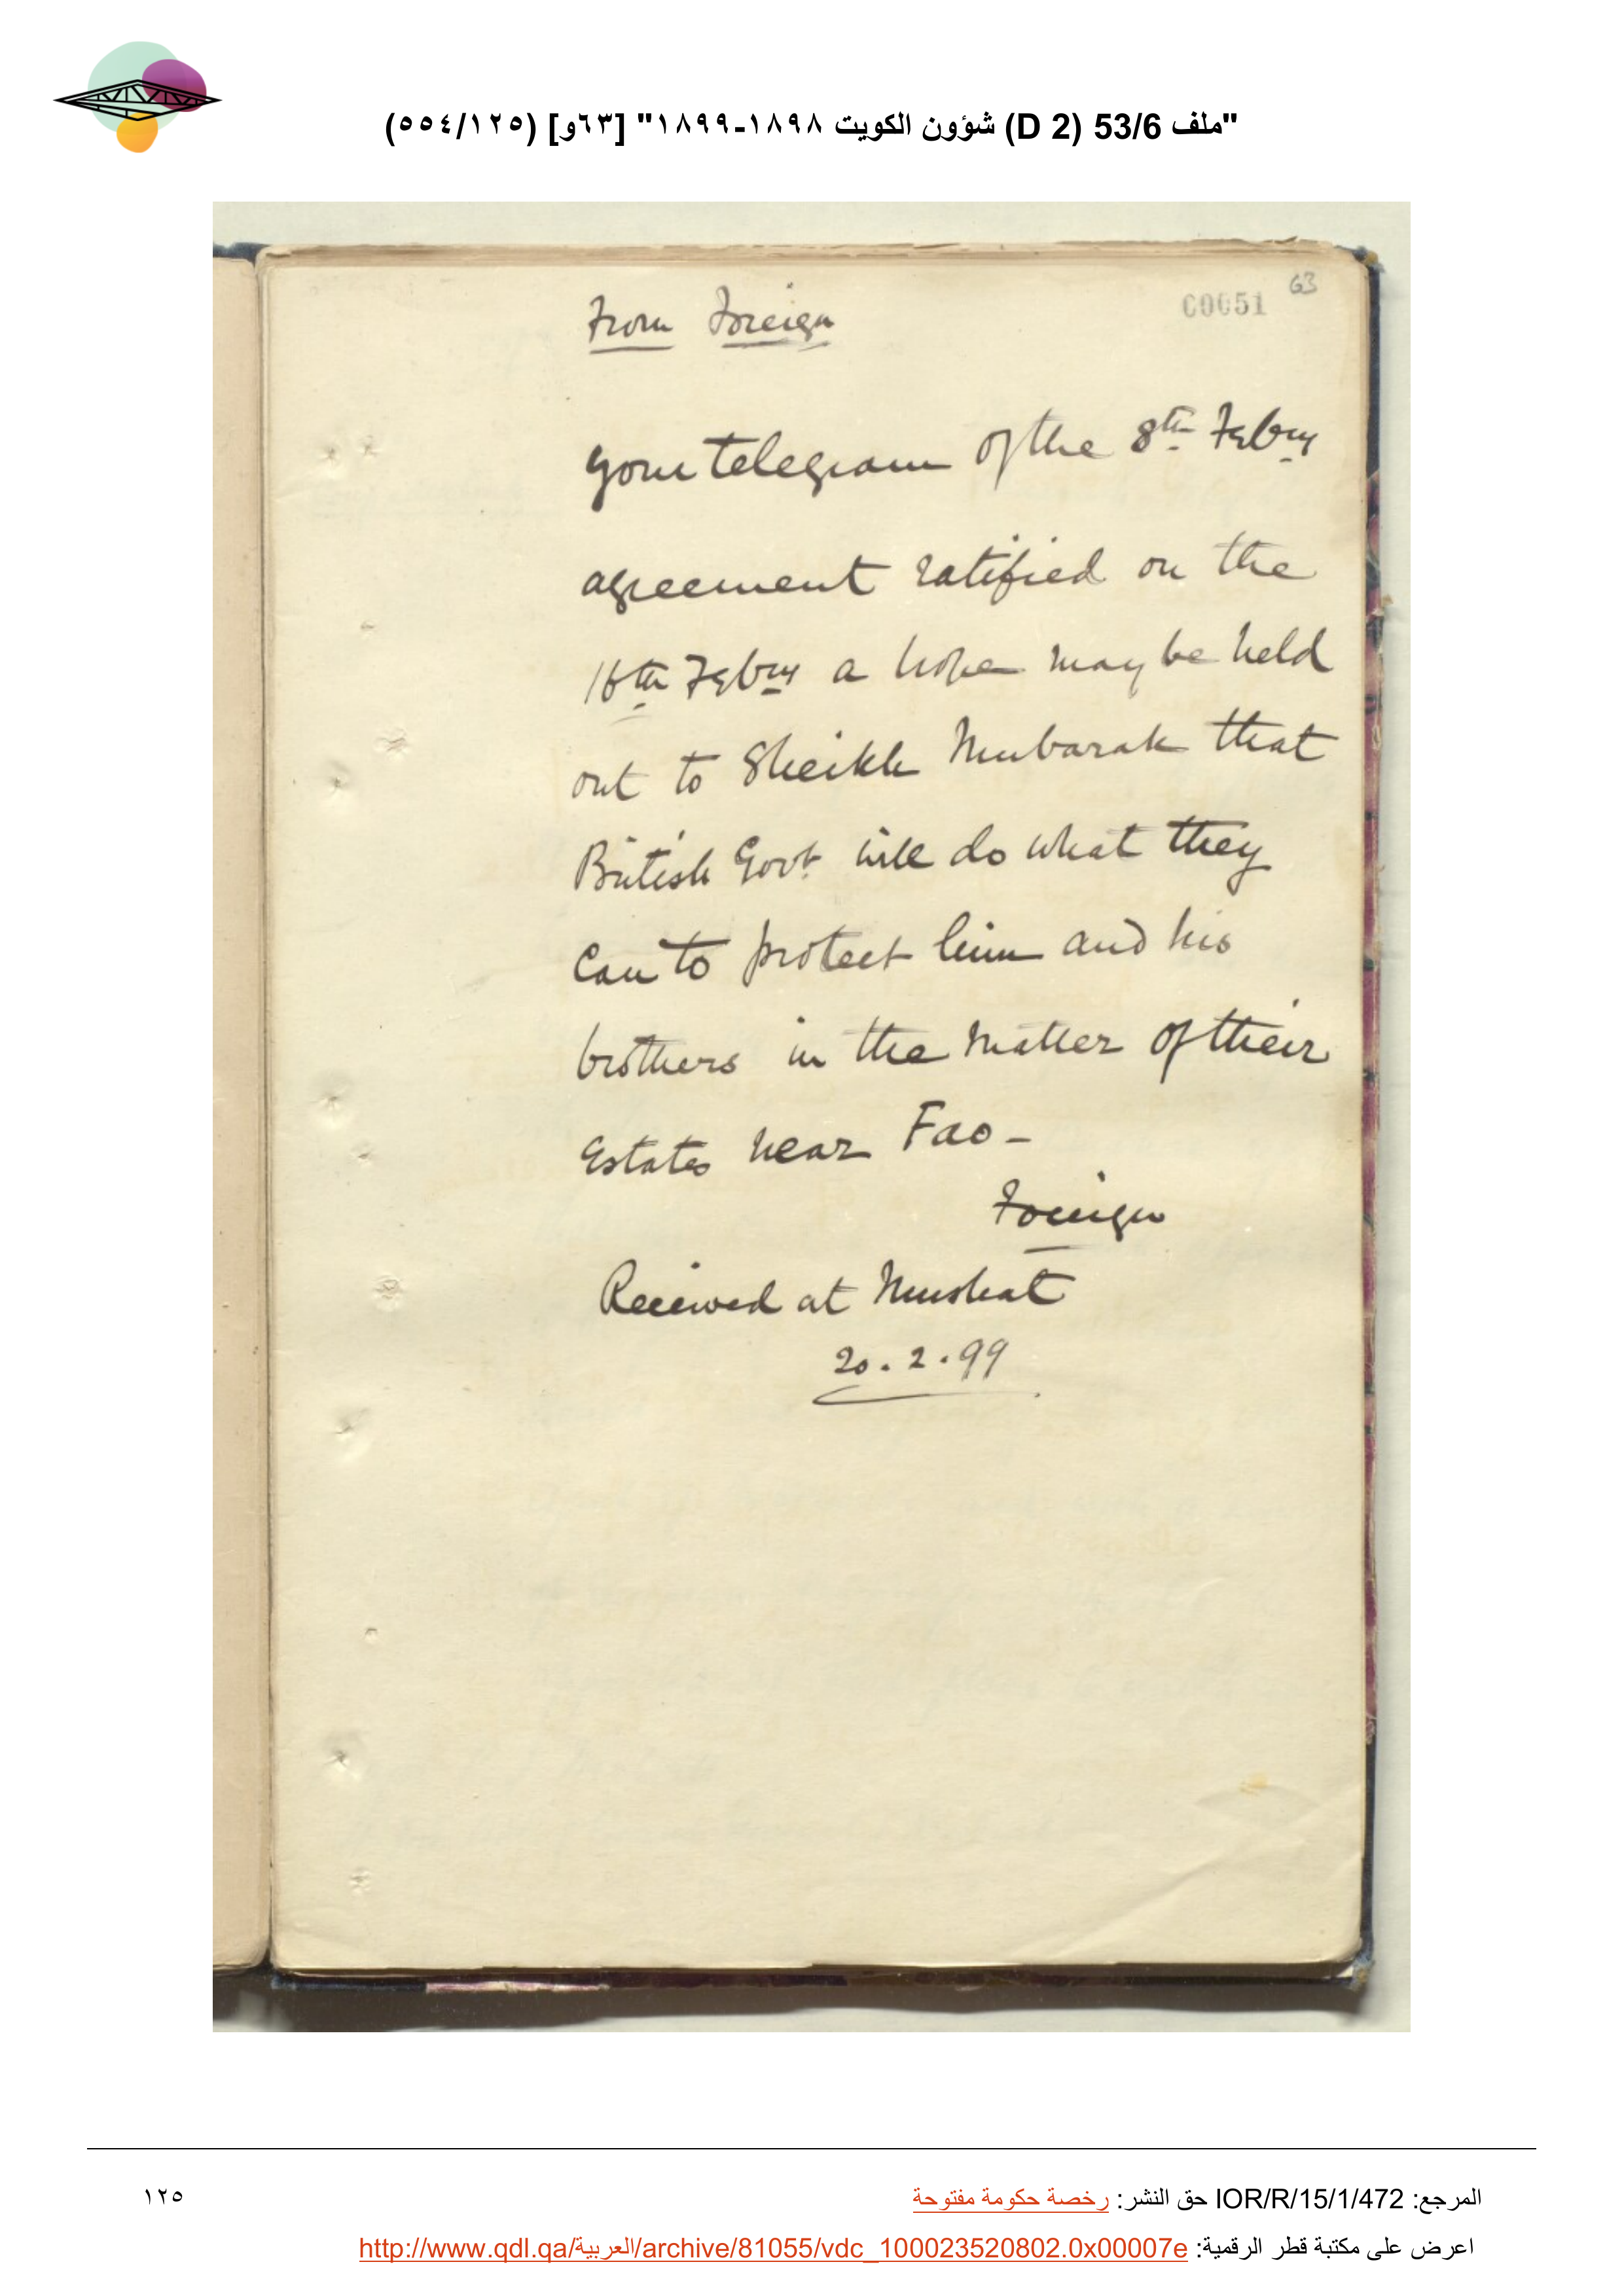 "ملف 53/6 (D 2) شؤون الكويت ١٨٩٨-١٨٩٩" [٦٣و] (١٢٥/٥٥٤)
63
00051
From Foreign
Your telegram of the 8th Febry
agreement ratified on the
16th Febry a hope may be held
out to Sheikh Mubarak that
British Govt will do what they
can to protect him and his
brothers in the matter of their
Estates near Fao –
Foreign
Received at Muskat
20.2.99
المرجع: IOR/R/15/1/472 حق النشر: رخصة حكومة مفتوحة
١٢٥
اعرض على مكتبة قطر الرقمية: http://www.qdl.qa/العربية/archive/81055/vdc_100023520802.0x00007e